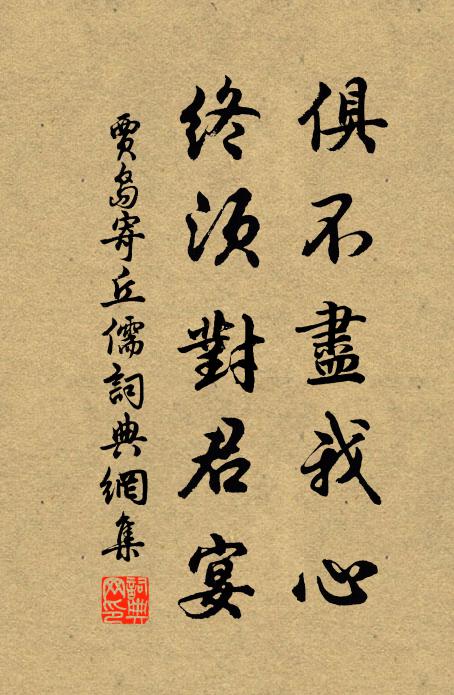 俱不盡我心
終須對君宴
賈島寄丘儒詞典網集
詞典网印